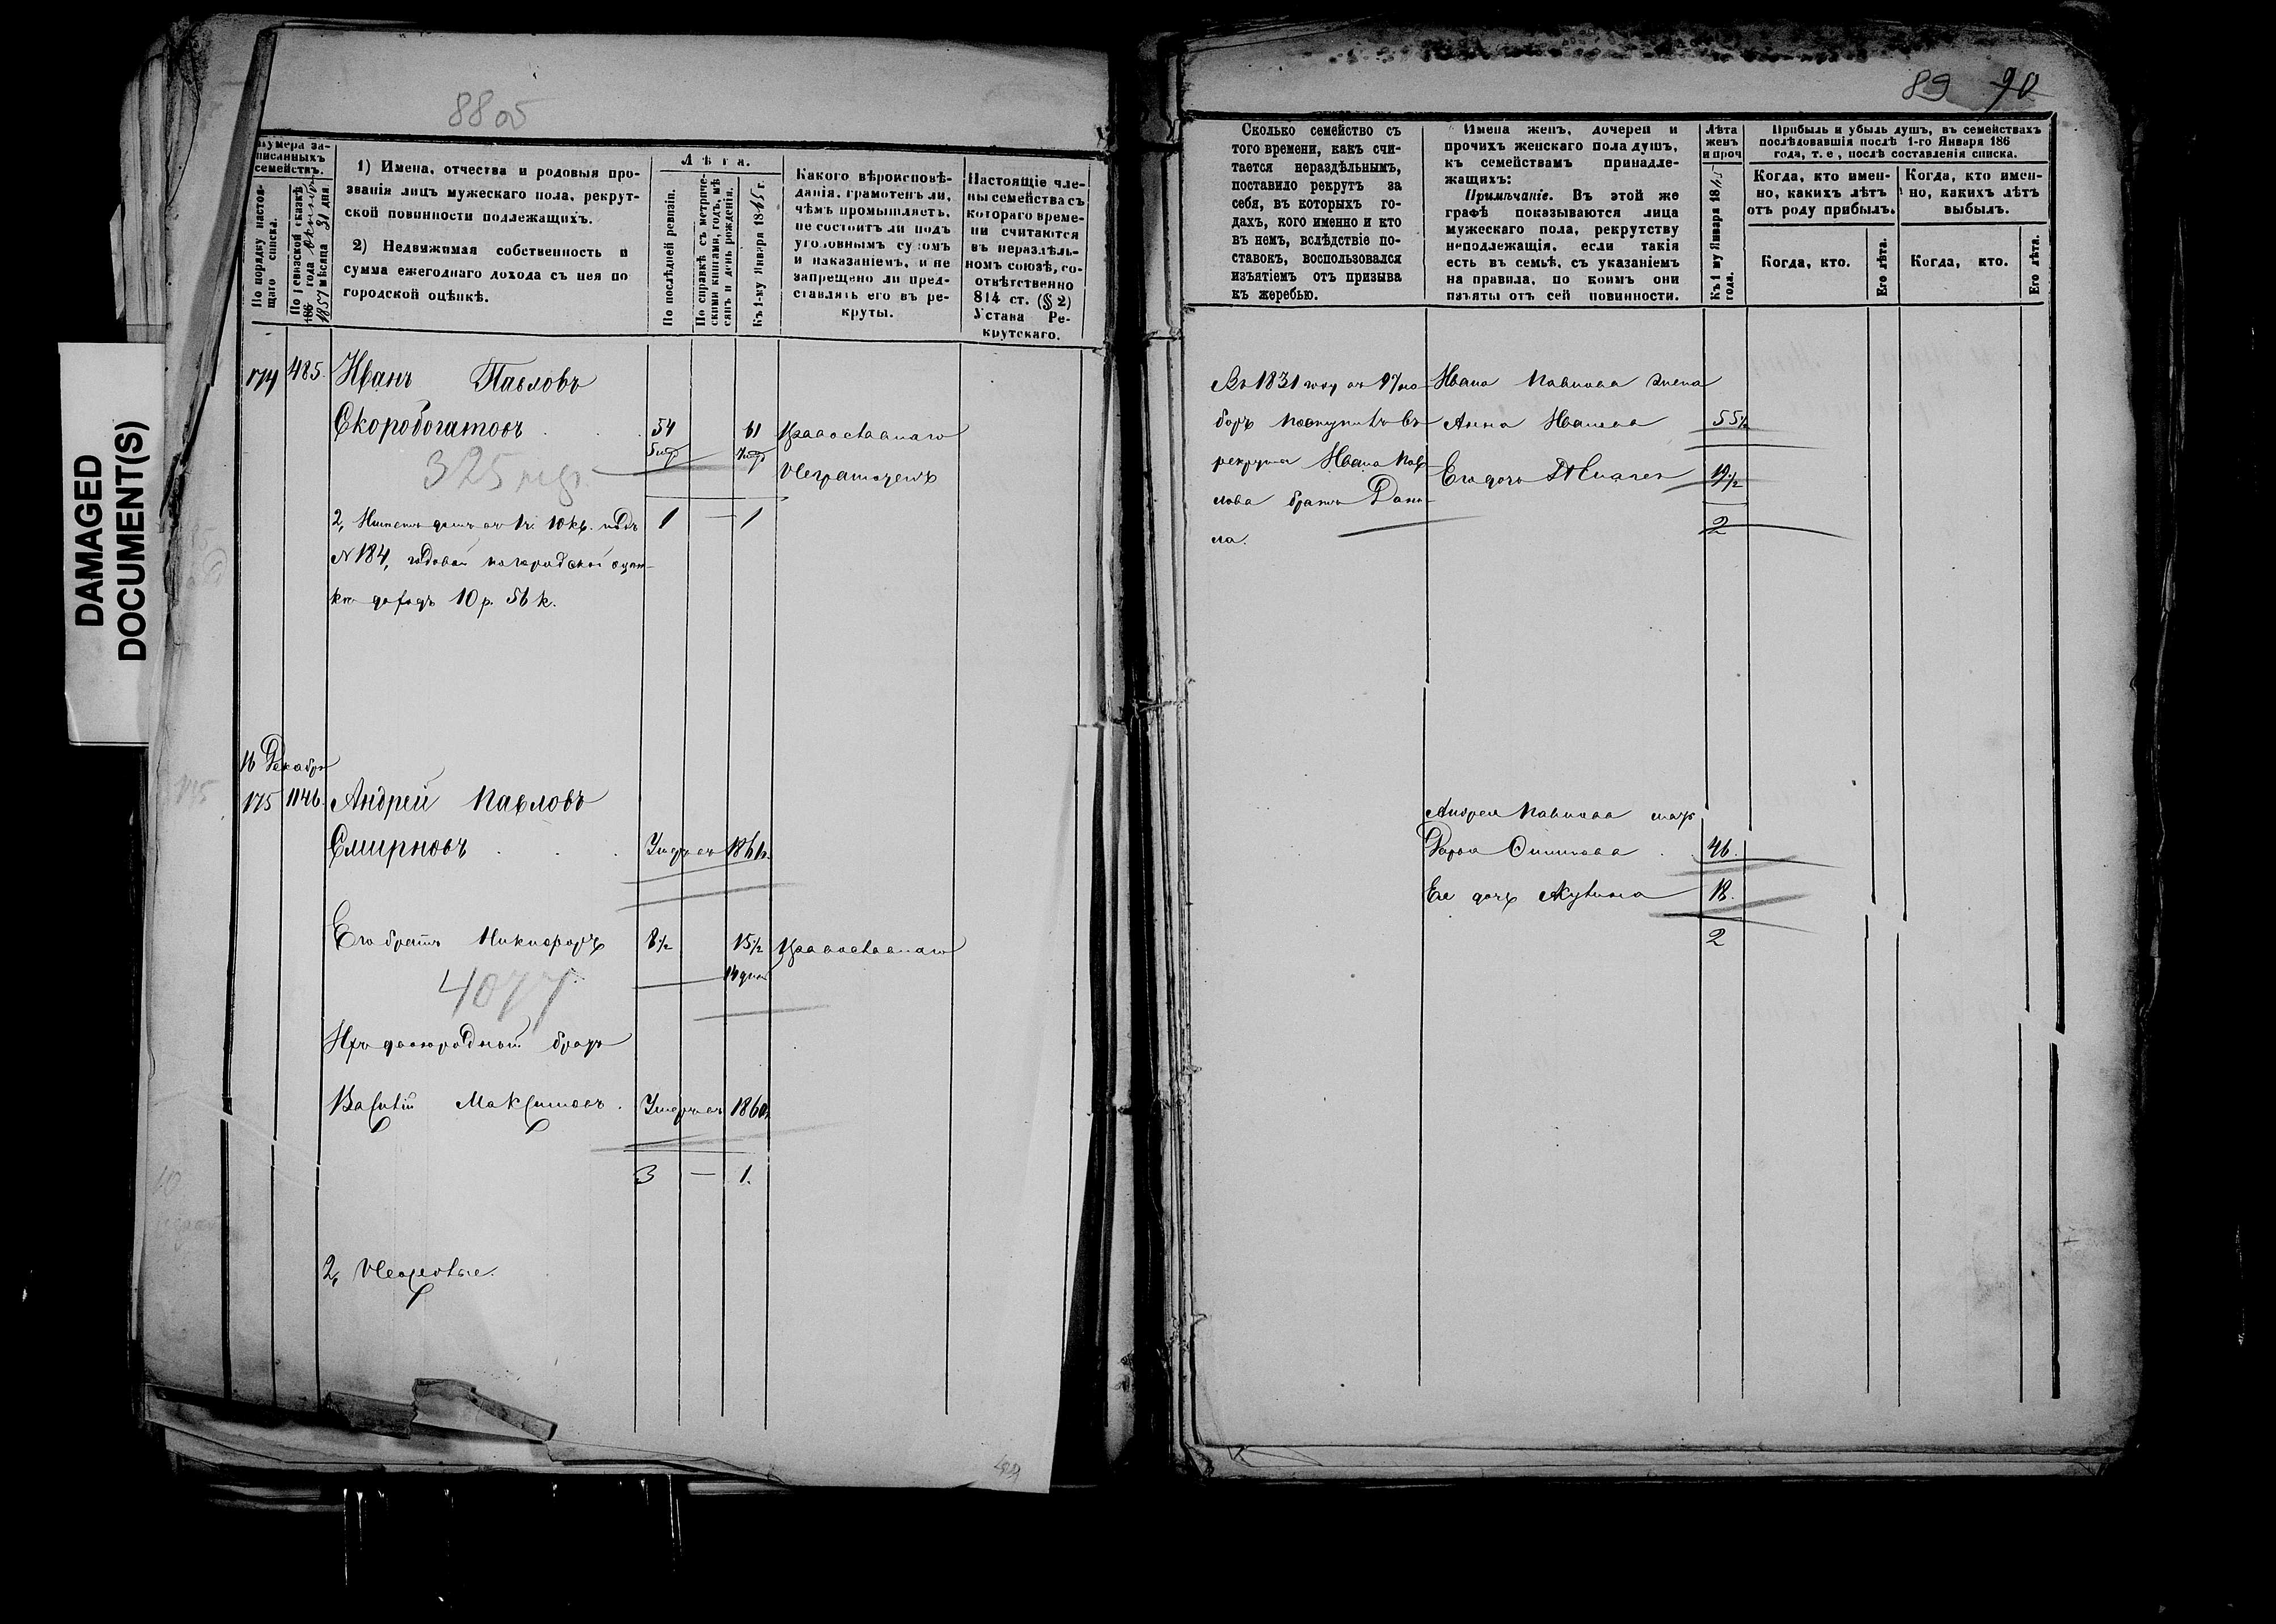 DAMAGED
DOCUMENT(S)
88 об
Нумера за-
писанныхъ
семействъ.
По порядку настоя-
щаго списка.
По ревизской сказкѣ
186 года
1857 мѣсяца 31 дня
1) Имена, отчества и родовыя про-
званія лицъ мужескаго пола, рекрут-
ской повинности подлежащихъ.
2) Недвижимая собственность и
сумма ежегоднаго дохода съ нея по
городской оцѣнкѣ.
Лѣта.
По послѣдней ревизіи.
По справкѣ съ метриче-
скими книгами, годъ, мѣ-
сяцъ и день рожденія.
Къ 1-му Января 1865 г.
Какого вѣроисповѣ-
данія, грамотенъ ли,
чѣмъ промышляетъ,
не состоитъ ли подъ
уголовнымъ судомъ
и наказаніемъ, и не
запрещено ли пред-
ставлять его въ ре-
круты.
Настоящіе чле-
ны семейства съ
котораго време-
ни считаются
въ нераздѣль-
номъ союзѣ, со-
отвѣтственно
814 ст. (§ 2)
Устава Ре-
крутскаго.
174 485. Иванъ Павловъ
Скоробогатовъ 54 61 Православнаго
325 Неграмотенъ
2, Имѣетъ домъ въ 1 ч. 10 кв. подъ 1 — 1
№ 184, годовой по городской оцѣн-
кѣ доходъ 10 р. 56 к.
16 Декабря
175 1146. Андрей Павловъ
Смирновъ Умеръ въ 1861 г.
Его братъ Никифоръ 8 1/2 15 1/2 Православнаго
14 дней
4077
Ихъ двоюродный братъ
Василій Максимовъ. Умеръ въ 1860 г.
3 — 1.
2,
89 90
Сколько семейство съ
того времени, какъ счи-
тается нераздѣльнымъ,
поставило рекрутъ за
себя, въ которыхъ го-
дахъ, кого именно и кто
въ немъ, вслѣдствіе по-
ставокъ, воспользовался
изъятіемъ отъ призыва
къ жеребью.
Имена женъ, дочерей и
прочихъ женскаго пола душъ,
къ семействамъ принадле-
жащихъ:
Примѣчаніе. Въ этой же
графѣ показываются лица
мужескаго пола, рекрутству
неподлежащія, если такія
есть въ семьѣ, съ указаніемъ
на правила, по коимъ они
изъяты отъ сей повинности.
Лѣта
женъ
и проч
Къ 1 му Января 1865
года.
Прибыль и убыль душъ, въ семействахъ
послѣдовавшія послѣ 1-го Января 186
года, т. е, послѣ составленія списка.
Когда, кто имен-
но, какихъ лѣтъ
отъ роду прибылъ.
Когда, кто имен-
но, какихъ лѣтъ
выбылъ.
Когда, кто.
Его лѣта.
Когда, кто.
Его лѣта.
Въ 1831 году въ 97 на- Ивана Павлова жена
боръ поступилъ въ Анна Иванова 55 1/2
рекруты Ивана Пав- Его дочь 19 1/2
лова братъ Дани- 2
ла.
Андрея Павлова мать
Дарья Осипова 46.
Ея дочь Акулина 18.
2